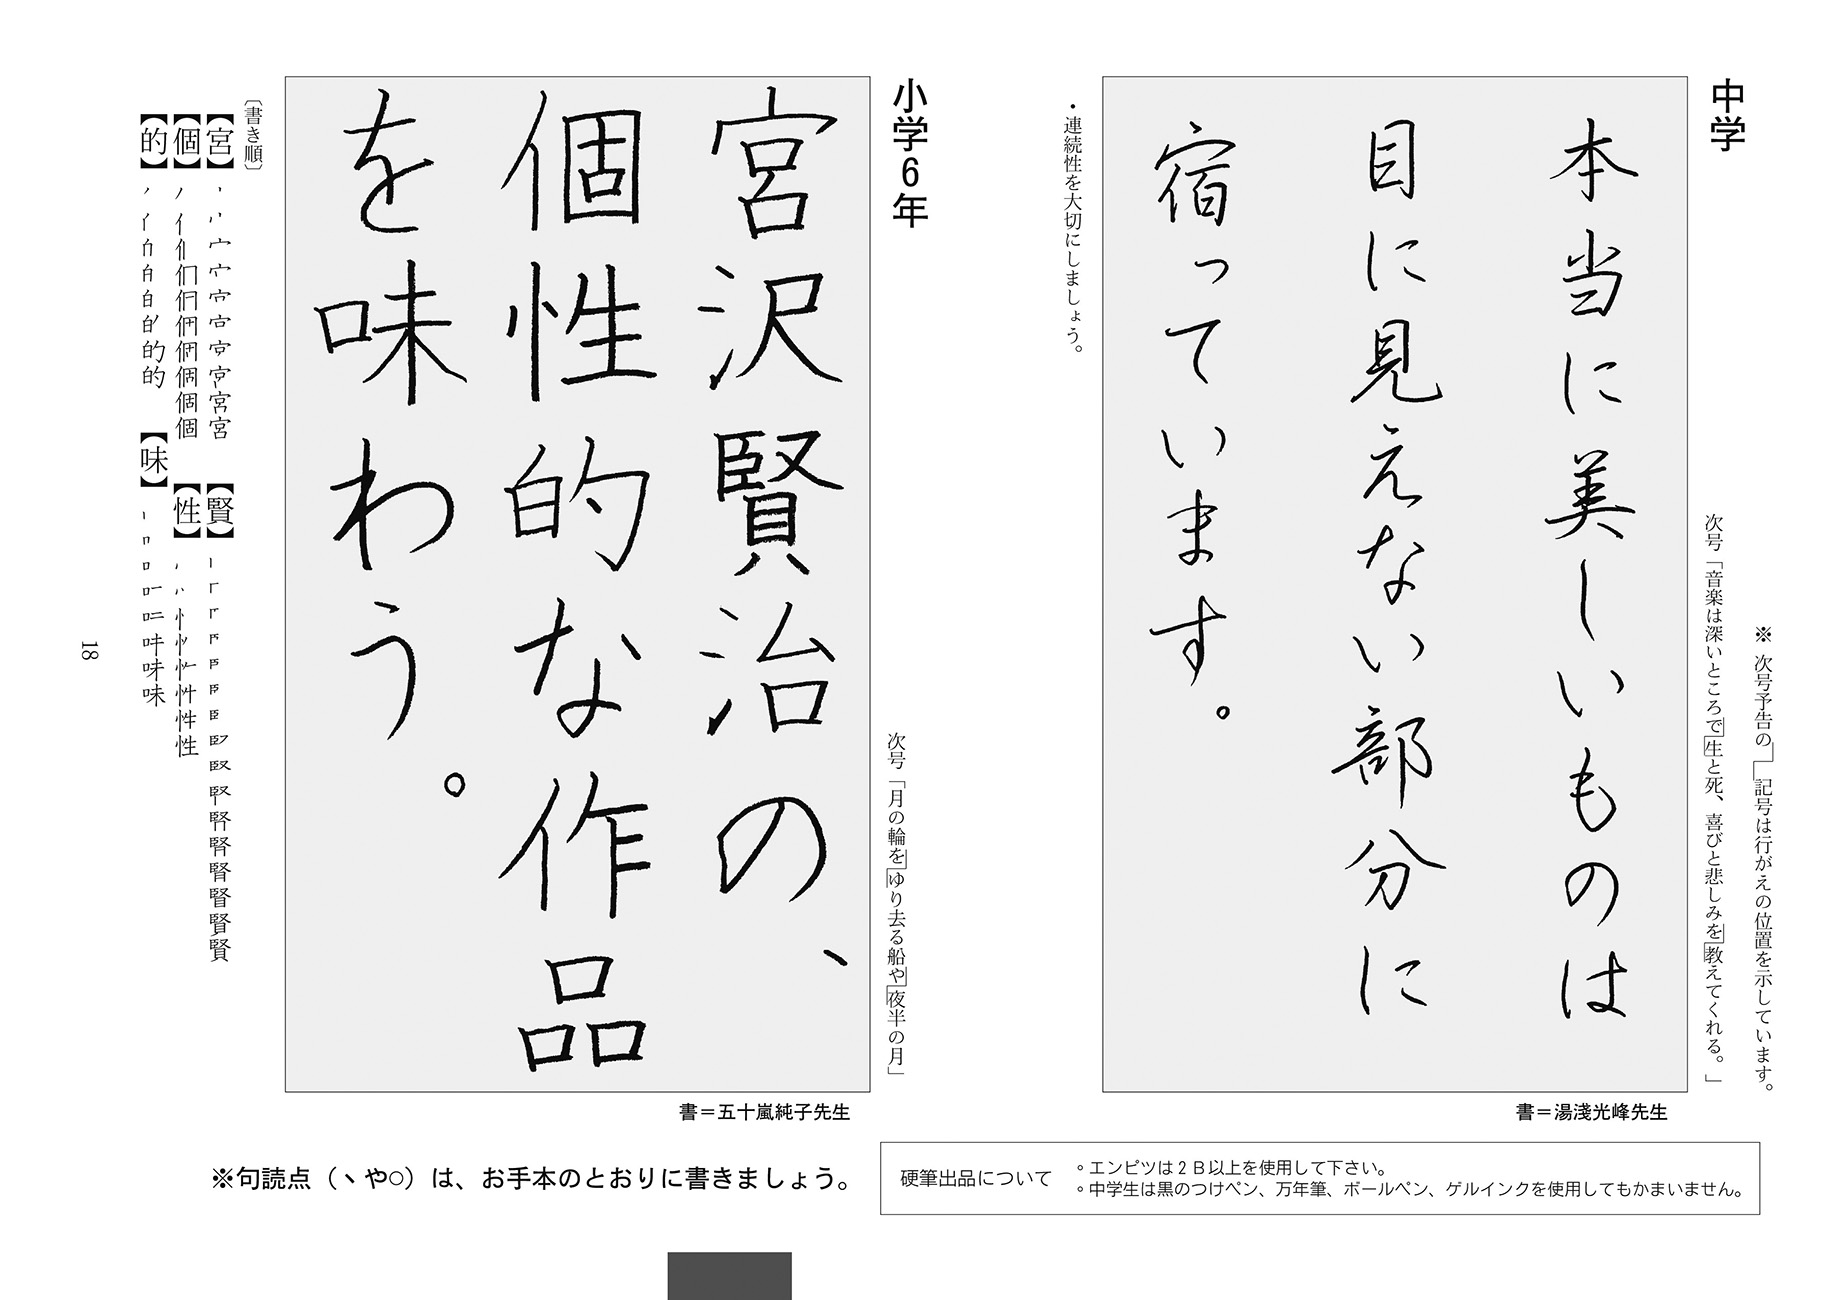 ※ 次号予告の」「記号は行がえの位置を示しています。
次号「音楽は深いところで」「生と死、喜びと悲しみを」「教えてくれる。」
中学
本当に美しいものは
目に見えない部分に
宿っています。
・連続性を大切にしましょう。
書＝湯淺光峰先生
小学6年
次号「月の輪を」「ゆり去る船や」「夜半の月」
宮沢賢治の、
個性的な作品
を味わう。
書＝五十嵐純子先生
〔書き順〕
【宮】
【賢】
【個】
【性】
【的】
【味】
18
※句読点（、や○）は、お手本のとおりに書きましょう。
硬筆出品について
。エンピツは2B以上を使用して下さい。
。中学生は黒のつけペン、万年筆、ボールペン、ゲルインクを使用してもかまいません。